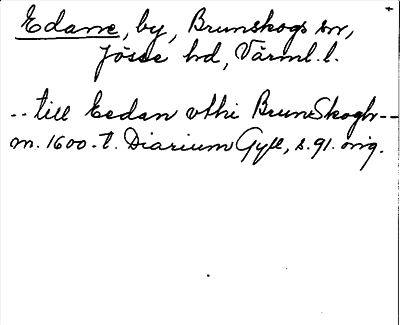 Edane, by, Brunskogs sn,
Jösse hd, Värml. l.
-- till Eedan vthi BrunSkogh--
m. 1600-t. Diarium Gyll, s. 91. orig.